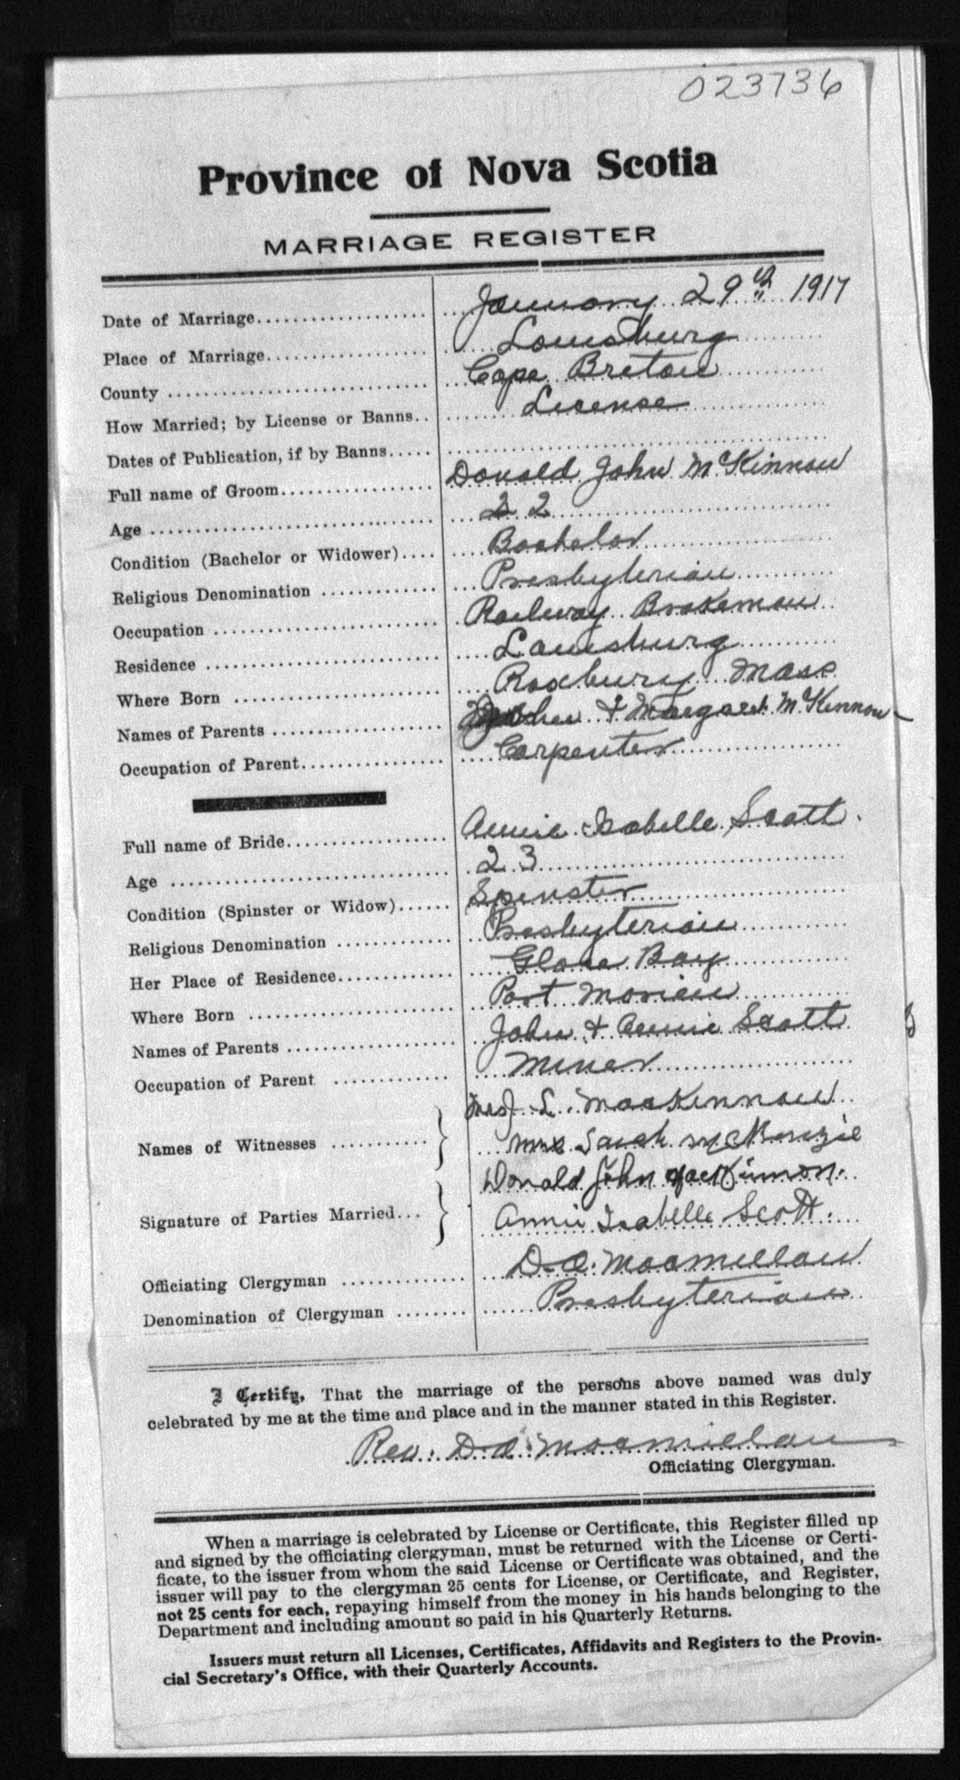 023736
Province of Nova Scotia
MARRIAGE REGISTER
Date of Marriage.................... January 29th 1917
Place of Marriage................... Louisburg
County .............................. Cape Breton
How Married; by License or Banns.. License
Dates of Publication, if by Banns.....
Full name of Groom................. Donald John McKinnon
Age ................................. 22
Condition (Bachelor or Widower).... Bachelor
Religious Denomination ............. Presbyterian
Occupation ......................... Railway Brakeman
Residence .......................... Louisburg
Where Born ........................ Roxbury Mass
Names of Parents ................... John & Margaret McKinnon
Occupation of Parent................ Carpenter
Full name of Bride.................. Annie Isabelle Scott.
Age ................................ 23
Condition (Spinster or Widow)...... Spinster
Religious Denomination ............ Presbyterian
Her Place of Residence............. Glace Bay
Where Born ........................ Port Morien
Names of Parents .................. John & Annie Scott
Occupation of Parent ............. Miner
L. MacKinnon
Names of Witnesses ........... Mrs Sarah McKenzie
Donald John MacKinnon.
Signature of Parties Married... Annie Isabelle Scott.
Officiating Clergyman .............. D. A. Macmillan
Denomination of Clergyman ........ Presbyterian
I Certify, That the marriage of the persons above named was duly
celebrated by me at the time and place and in the manner stated in this Register.
Rev. D. A. Macmillan
Officiating Clergyman.
When a marriage is celebrated by License or Certificate, this Register filled up
and signed by the officiating clergyman, must be returned with the License or Certi-
ficate, to the issuer from whom the said License or Certificate was obtained, and the
issuer will pay to the clergyman 25 cents for License, or Certificate, and Register,
not 25 cents for each, repaying himself from the money in his hands belonging to the
Department and including amount so paid in his Quarterly Returns.
Issuers must return all Licenses, Certificates, Affidavits and Registers to the Provin-
cial Secretary's Office, with their Quarterly Accounts.